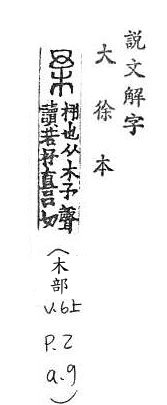 說文解字
大徐本
栩也从木予聲
讀若杼直呂切
(木部
v.6上
P.2
a.9)